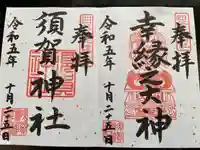 奉拝
幸縁大神
令和五年
十月二十五日
奉拝
須賀神社
令和五年
十月二十五日